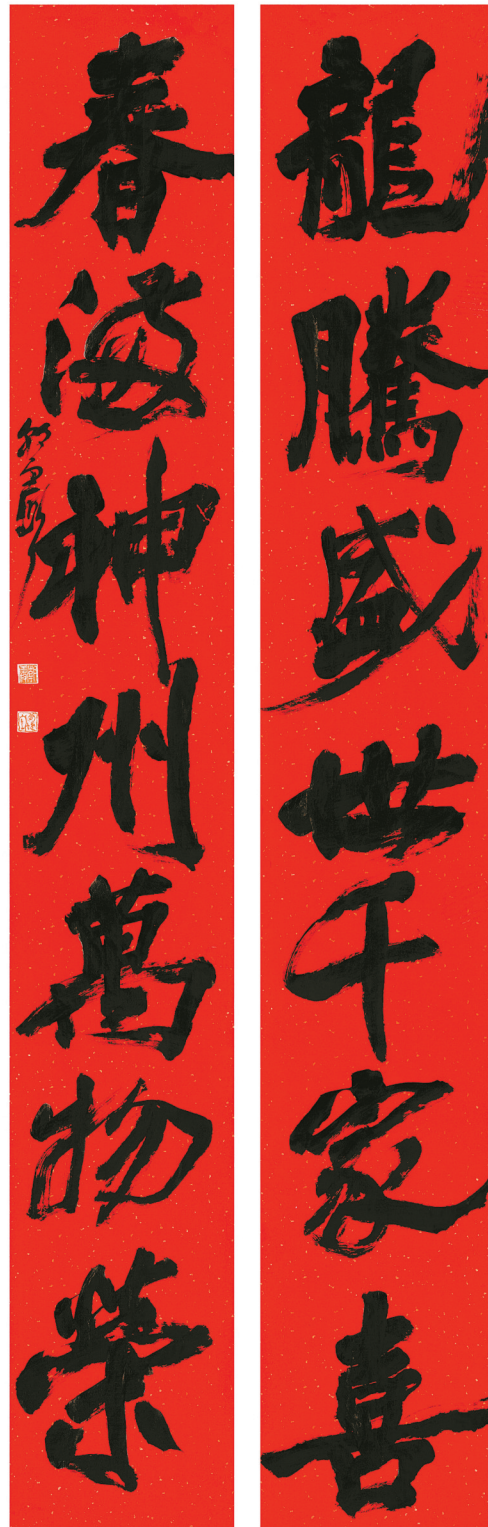 龍騰盛世千家喜
春滿神州萬物榮